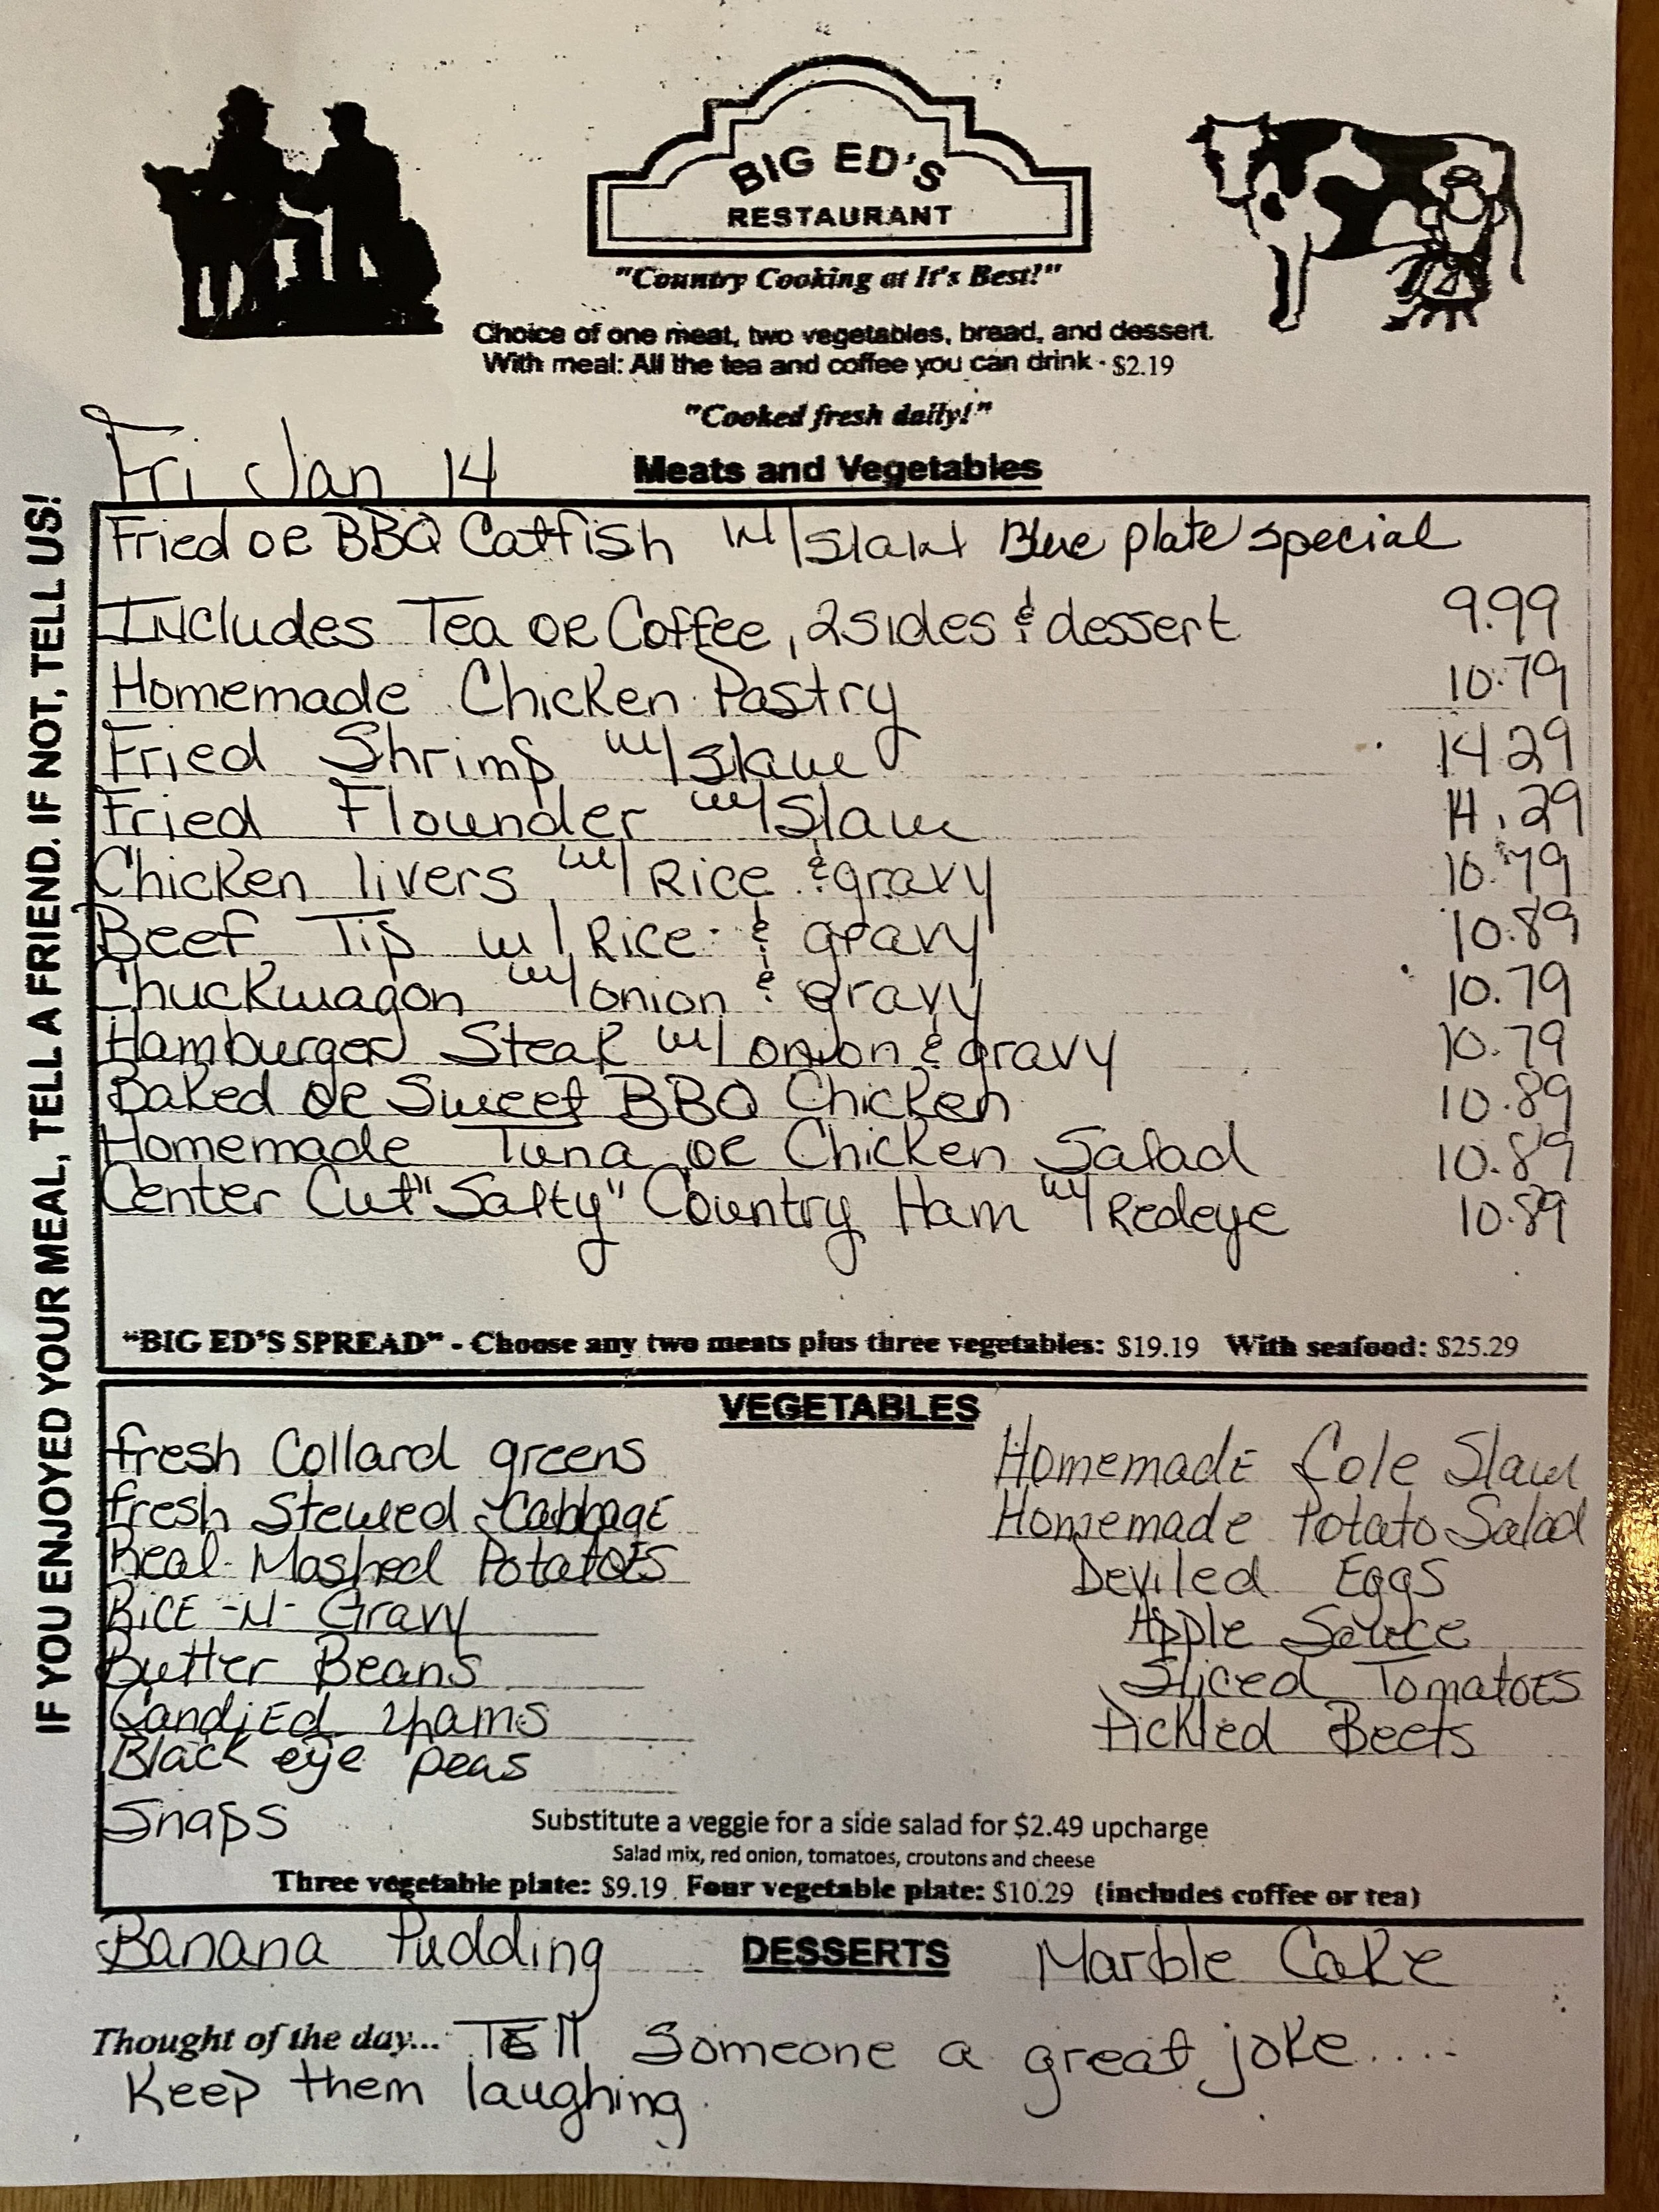 BIG ED'S
RESTAURANT
"Country Cooking at It's Best!"
Choice of one meat, two vegetables, bread, and dessert.
With meal: All the tea and coffee you can drink - $2.19
"Cooked fresh daily!"
Fri Jan 14
Meats and Vegetables
IF YOU ENJOYED YOUR MEAL, TELL A FRIEND. IF NOT, TELL US!
Fried OR BBQ Catfish w/slaw Blue plate special
Includes Tea OR Coffee, 2 sides & dessert 9.99
Homemade Chicken Pastry 10.79
Fried Shrimp w/slaw 14.29
Fried Flounder w/Slaw 14.29
Chicken livers w/ Rice & gravy 10.79
Beef Tip w/ Rice & gravy 10.89
Chuckwagon w/onion & gravy 10.79
Hamburger Steak w/onion & gravy 10.79
Baked OR Sweet BBQ Chicken 10.89
Homemade Tuna OR Chicken Salad 10.89
Center Cut "Salty" Country Ham w/ Redeye 10.89
"BIG ED'S SPREAD" - Choose any two meats plus three vegetables: $19.19 With seafood: $25.29
VEGETABLES
fresh Collard greens
fresh Stewed Cabbage
Real Mashed Potatoes
Rice -N- Gravy
Butter Beans
Candied Yams
Black eye peas
Snaps
Homemade Cole Slaw
Homemade Potato Salad
Deviled Eggs
Apple Sauce
Sliced Tomatoes
Pickled Beets
Substitute a veggie for a side salad for $2.49 upcharge
Salad mix, red onion, tomatoes, croutons and cheese
Three vegetable plate: $9.19 Four vegetable plate: $10.29 (includes coffee or tea)
Banana Pudding DESSERTS Marble Cake
Thought of the day... TEll Someone a great joke.....
Keep them laughing.